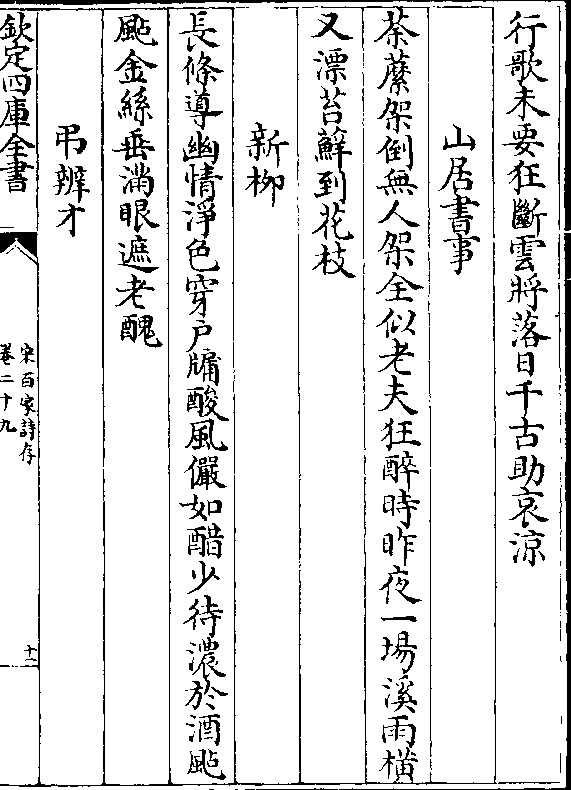 行歌未要狂斷雲將落日千古助哀涼
山居書事
荼蘼架倒無人架全似老夫狂醉時昨夜一場溪雨橫
又漂苔蘚到花枝
新柳
長條導幽情淨色穿戸牗酸風儼如醋少待濃於酒颭
颭金絲垂滿眼遮老醜
弔辨才
欽定四庫全書
宋百家詩存
卷二十九
十二